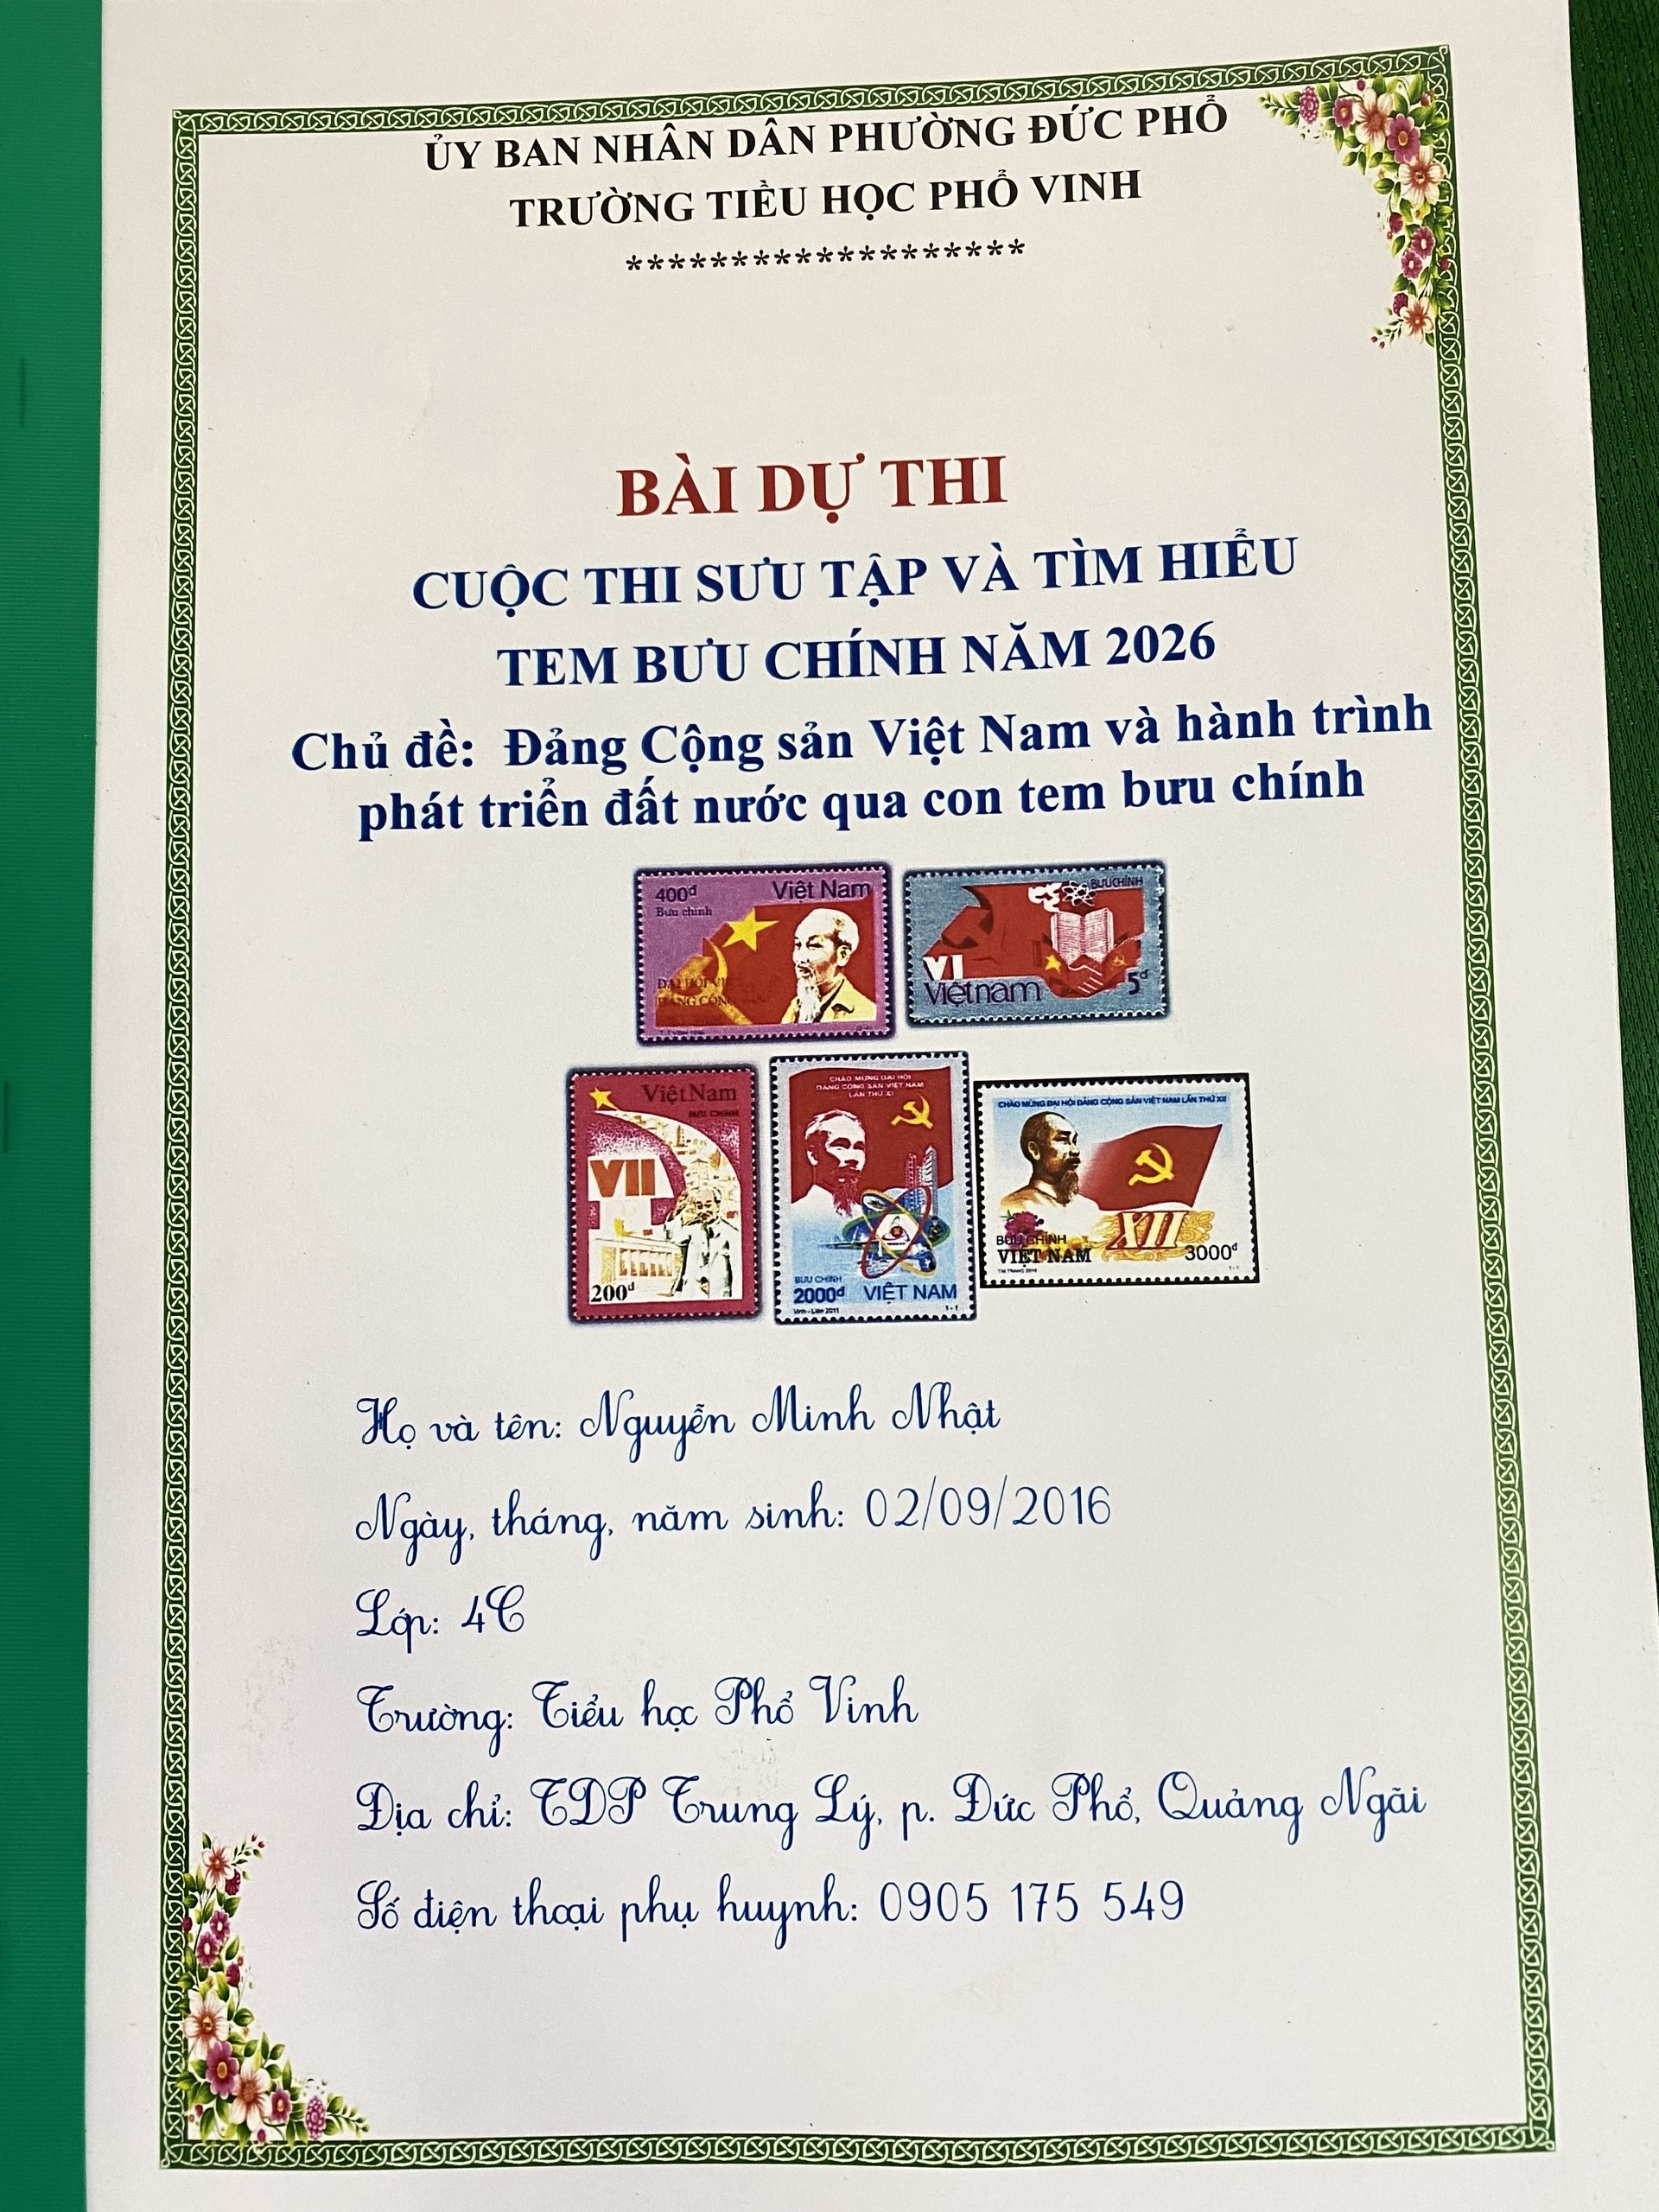 ỦY BAN NHÂN DÂN PHƯỜNG ĐỨC PHỔ
TRƯỜNG TIỀU HỌC PHỔ VINH
*******************
BÀI DỰ THI
CUỘC THI SƯU TẬP VÀ TÌM HIỂU
TEM BƯU CHÍNH NĂM 2026
Chủ đề: Đảng Cộng sản Việt Nam và hành trình
phát triển đất nước qua con tem bưu chính
400đ Việt Nam
Bưu chính
ĐẠI HỘI
ĐẢNG CỘNG
BƯU CHÍNH
VI
Việtnam 5đ
Việt Nam
BƯU CHÍNH
VII
200đ
CHÀO MỪNG ĐẠI HỘI
ĐẢNG CỘNG SẢN VIỆT NAM
LẦN THỨ XI
BƯU CHÍNH
2000đ VIỆT NAM
Vinh - Liên 2011 1 - 1
CHÀO MỪNG ĐẠI HỘI ĐẢNG CỘNG SẢN VIỆT NAM LẦN THỨ XII
XII
BƯU CHÍNH
VIỆT NAM 3000đ
1 - 1
Họ và tên: Nguyễn Minh Nhật
Ngày, tháng, năm sinh: 02/09/2016
Lớp: 4C
Trường: Tiểu học Phổ Vinh
Địa chỉ: TDP Trung Lý, p. Đức Phổ, Quảng Ngãi
Số điện thoại phụ huynh: 0905 175 549